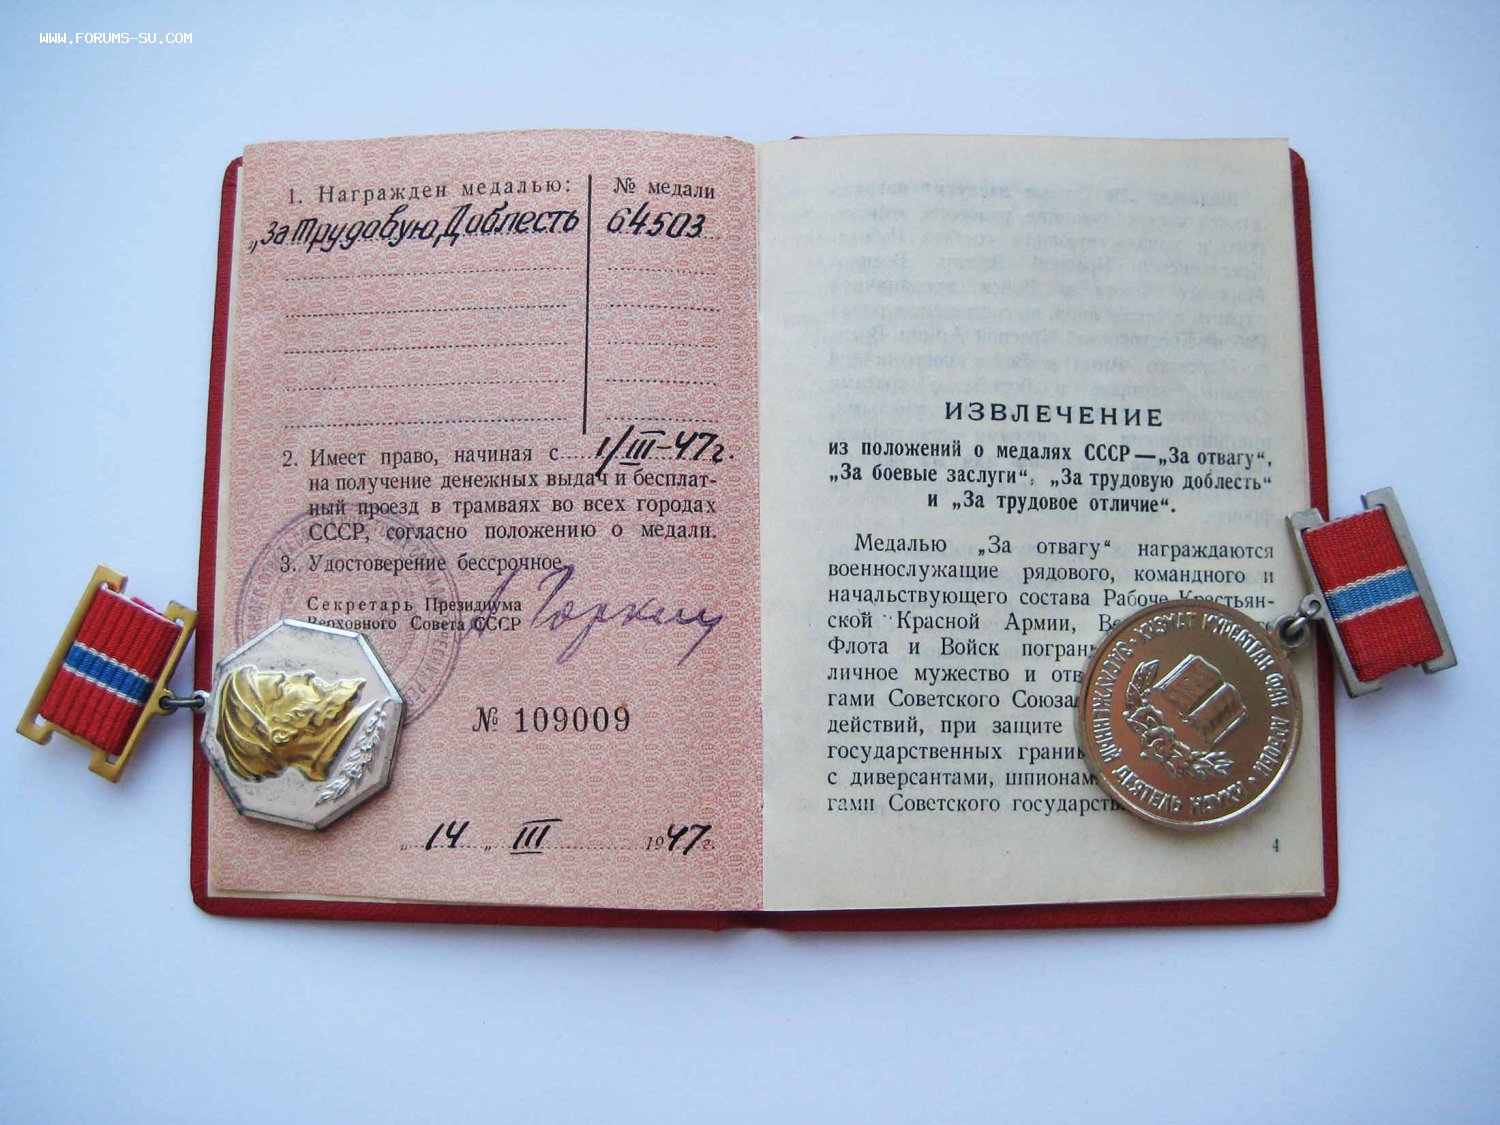 WWW.FORUMS-SU.COM
1. Награжден медалью:
№ медали
„За Трудовую Доблесть
64503
2. Имеет право, начиная с 1/III-47г.
на получение денежных выдач и бесплат-
ный проезд в трамваях во всех городах
СССР, согласно положению о медали.
3. Удостоверение бессрочное.
Секретарь Президиума
Верховного Совета СССР
А Горкин
№ 109009
„14 „ III 1947г.
ИЗВЛЕЧЕНИЕ
из положений о медалях СССР—„За отвагу“,
„За боевые заслуги“, „За трудовую доблесть“
и „За трудовое отличие“.
Медалью „За отвагу“ награждаются
военнослужащие рядового, командного и
начальствующего состава Рабоче-Крестьян-
ской Красной Армии,
Флота и Войск погран
личное мужество и отв
гами Советского Союза
действий, при защите
государственных границ
с диверсантами, шпионам
гами Советского государств
4
ХИЗМАТ КЎРСАТГАН ФАН АРБОБИ
ЗАСЛУЖЕННЫЙ ДЕЯТЕЛЬ НАУКИ